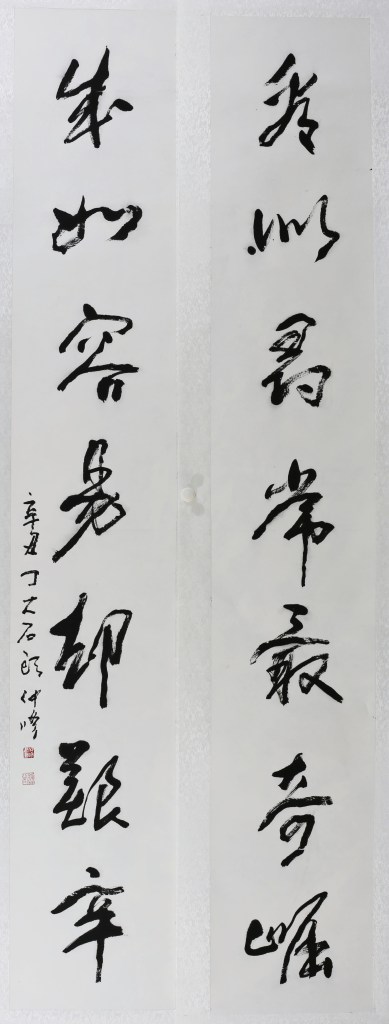 看似尋常最奇崛
成如容易却艱辛
辛丑丁大石